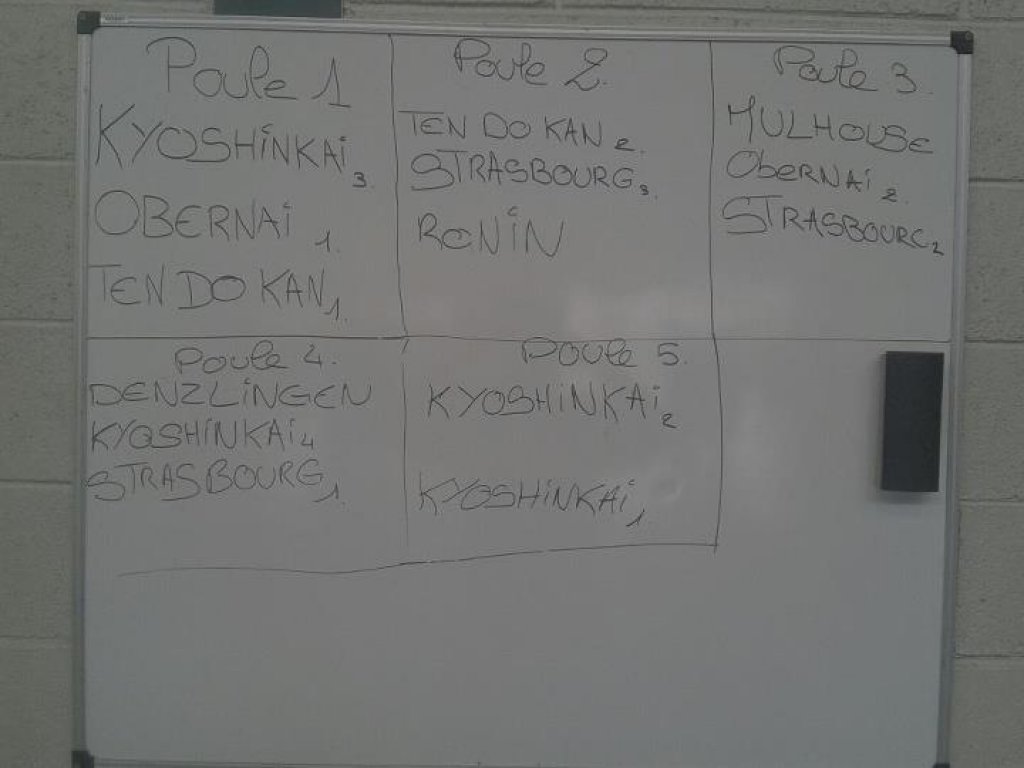 Poule 1
KYOSHiNKAi 3.
OBERNAi 1.
TEN DO KAN 1.
Poule 2.
TEN DO KAN 2.
STRASBOURG 3
RONiN
Poule 3.
MULHOUSE
ObeRNAi 2.
STRASBOURG 2
Poule 4.
DENZLiNGEN
KYOSHiNKAi 4
STRASBOURG 1.
POULE 5.
KYOSHiNKAi 2
KYOSHiNKAi 1